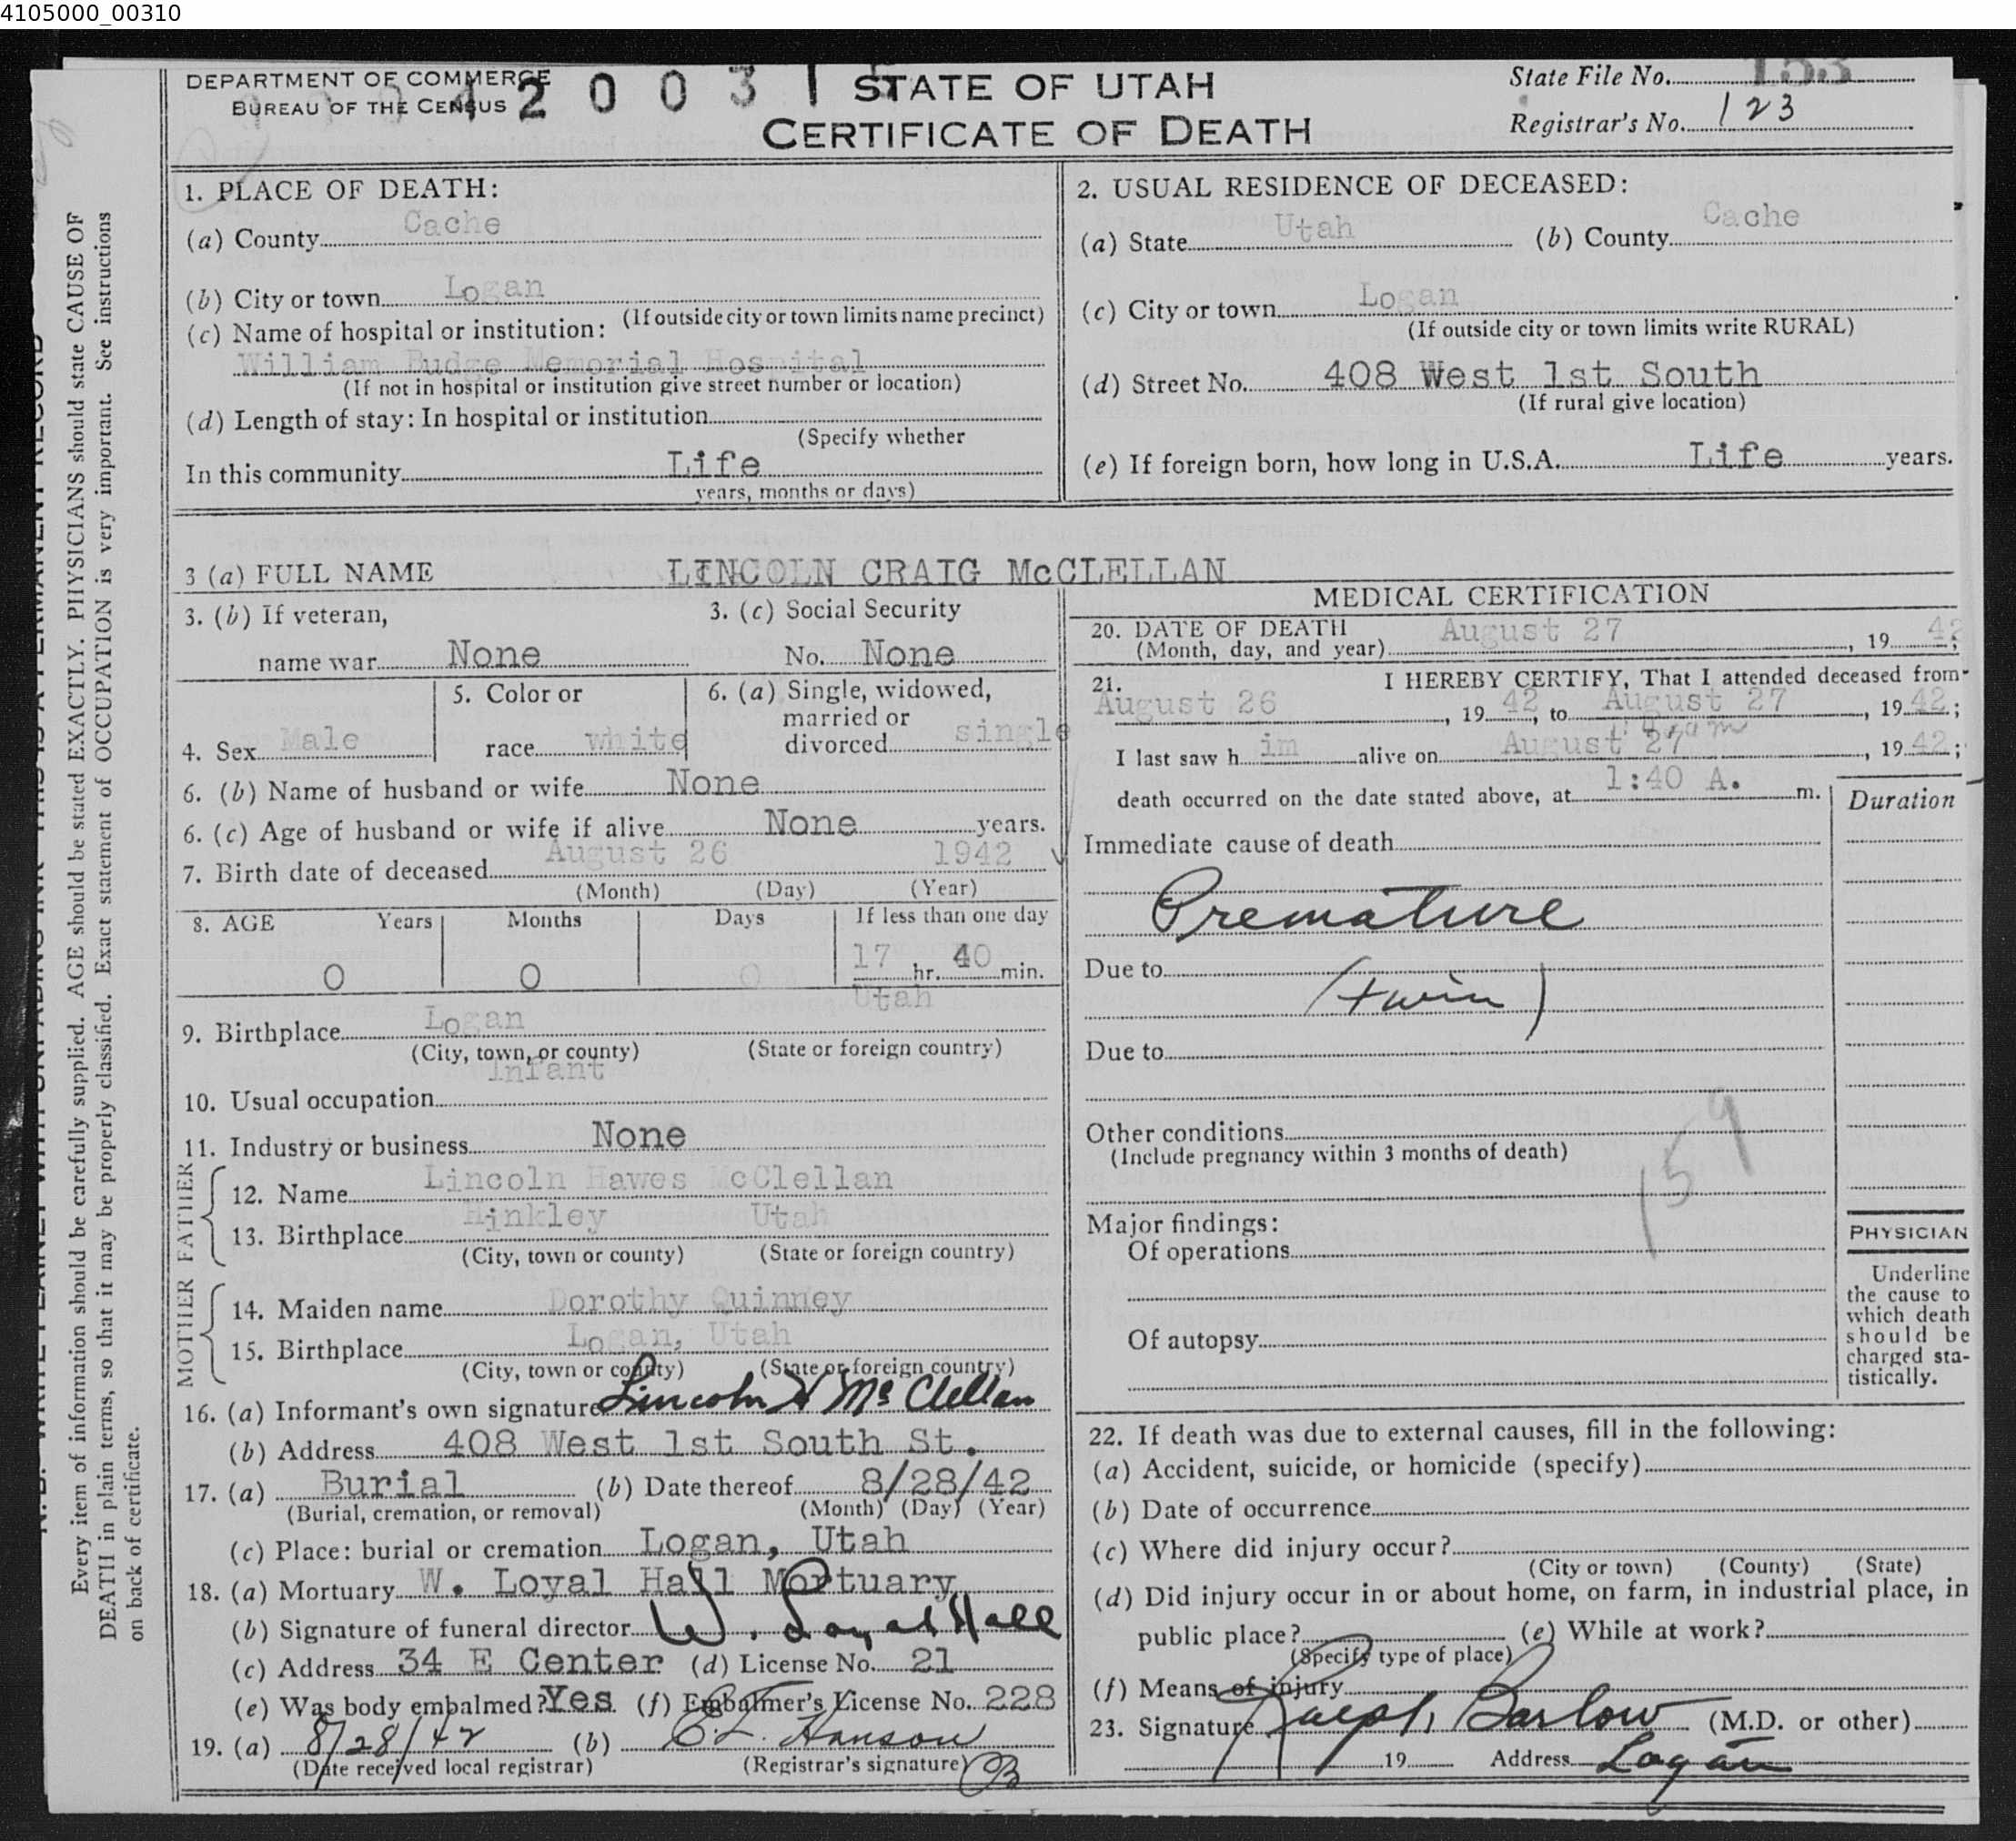 4105000_00310
DEPARTMENT OF COMMERCE
BUREAU OF THE CENSUS
4 2 0 0 3 1
STATE OF UTAH
CERTIFICATE OF DEATH
State File No. 153
Registrar's No. 123
Every item of information should be carefully supplied. AGE should be stated EXACTLY. PHYSICIANS should state CAUSE OF
DEATH in plain terms, so that it may be properly classified. Exact statement of OCCUPATION is very important. See instructions
on back of certificate.
1. PLACE OF DEATH:
(a) County Cache
(b) City or town Logan
(If outside city or town limits name precinct)
(c) Name of hospital or institution:
William Budge Memorial Hospital
(If not in hospital or institution give street number or location)
(d) Length of stay: In hospital or institution
(Specify whether
In this community Life
years, months or days)
2. USUAL RESIDENCE OF DECEASED:
(a) State Utah (b) County Cache
(c) City or town Logan
(If outside city or town limits write RURAL)
(d) Street No. 408 West 1st South
(If rural give location)
(e) If foreign born, how long in U.S.A. Life years.
3 (a) FULL NAME LINCOLN CRAIG McCLELLAN
3. (b) If veteran,
name war None
3. (c) Social Security
No. None
4. Sex Male
5. Color or
race white
6. (a) Single, widowed,
married or
divorced single
6. (b) Name of husband or wife None
6. (c) Age of husband or wife if alive None years.
7. Birth date of deceased August 26 1942
(Month) (Day) (Year)
8. AGE Years Months Days If less than one day
0 0 0 17 hr. 40 min.
9. Birthplace Logan Utah
(City, town, or county) (State or foreign country)
10. Usual occupation Infant
11. Industry or business None
FATHER
12. Name Lincoln Hawes McClellan
13. Birthplace Hinkley Utah
(City, town or county) (State or foreign country)
MOTHER
14. Maiden name Dorothy Quinney
15. Birthplace Logan, Utah
(City, town or county) (State or foreign country)
16. (a) Informant's own signature Lincoln H McClellan
(b) Address 408 West 1st South St.
17. (a) Burial (b) Date thereof 8/28/42
(Burial, cremation, or removal) (Month) (Day) (Year)
(c) Place: burial or cremation Logan, Utah
18. (a) Mortuary W. Loyal Hall Mortuary
(b) Signature of funeral director W. Loyal Hall
(c) Address 34 E Center (d) License No. 21
(e) Was body embalmed? Yes (f) Embalmer's License No. 228
19. (a) 8/28/42 (b) Hanson
(Date received local registrar) (Registrar's signature)
MEDICAL CERTIFICATION
20. DATE OF DEATH
(Month, day, and year) August 27, 19 42;
21. I HEREBY CERTIFY, That I attended deceased from
August 26, 19 42, to August 27, 19 42;
I last saw h im alive on August 27, 19 42;
death occurred on the date stated above, at 1:40 A. m.
Duration
Immediate cause of death
Premature
Due to
(twin)
Due to
159
Other conditions
(Include pregnancy within 3 months of death)
Major findings:
Of operations
Of autopsy
PHYSICIAN
Underline
the cause to
which death
should be
charged sta-
tistically.
22. If death was due to external causes, fill in the following:
(a) Accident, suicide, or homicide (specify)
(b) Date of occurrence
(c) Where did injury occur?
(City or town) (County) (State)
(d) Did injury occur in or about home, on farm, in industrial place, in
public place? (e) While at work?
(Specify type of place)
(f) Means of injury
23. Signature Ralph Barlow (M.D. or other)
19 Address Logan